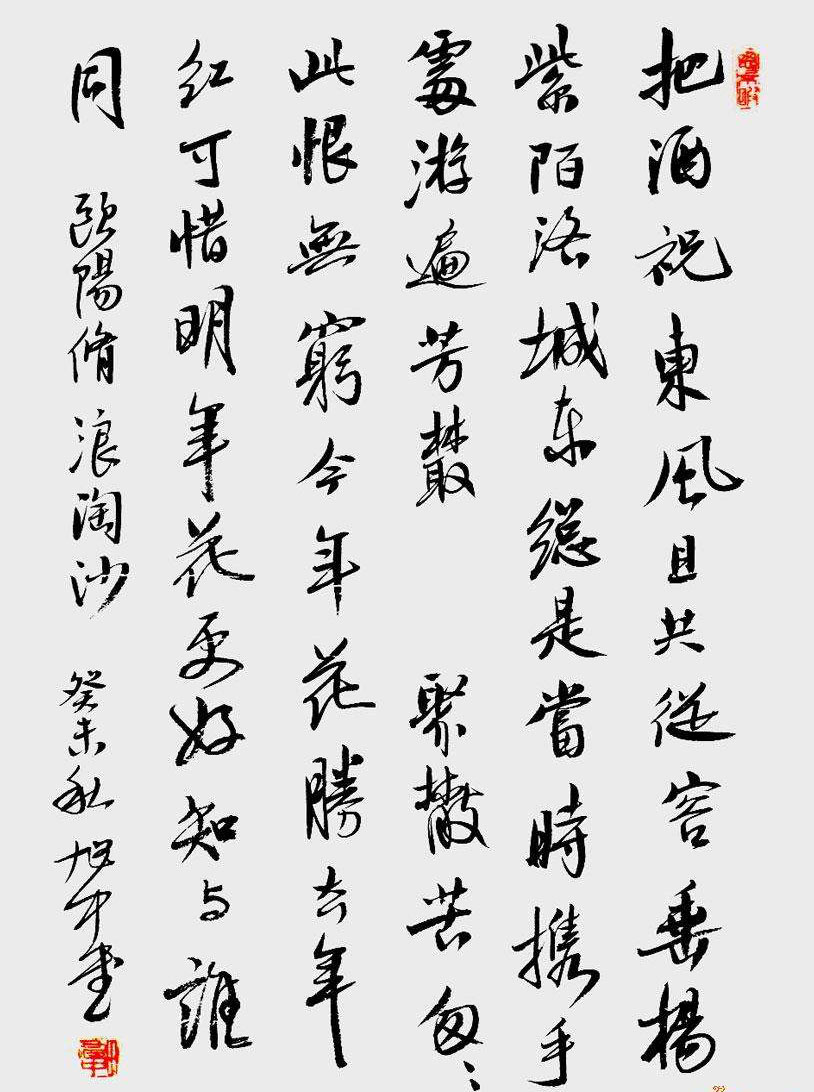 把酒祝東風且共從容垂楊
紫陌洛城东總是當時攜手
處游遍芳叢 聚散苦匆〻
此恨無窮今年花勝去年
紅可惜明年花更好知与誰
同 歐陽脩浪淘沙 癸未秋旭宇書